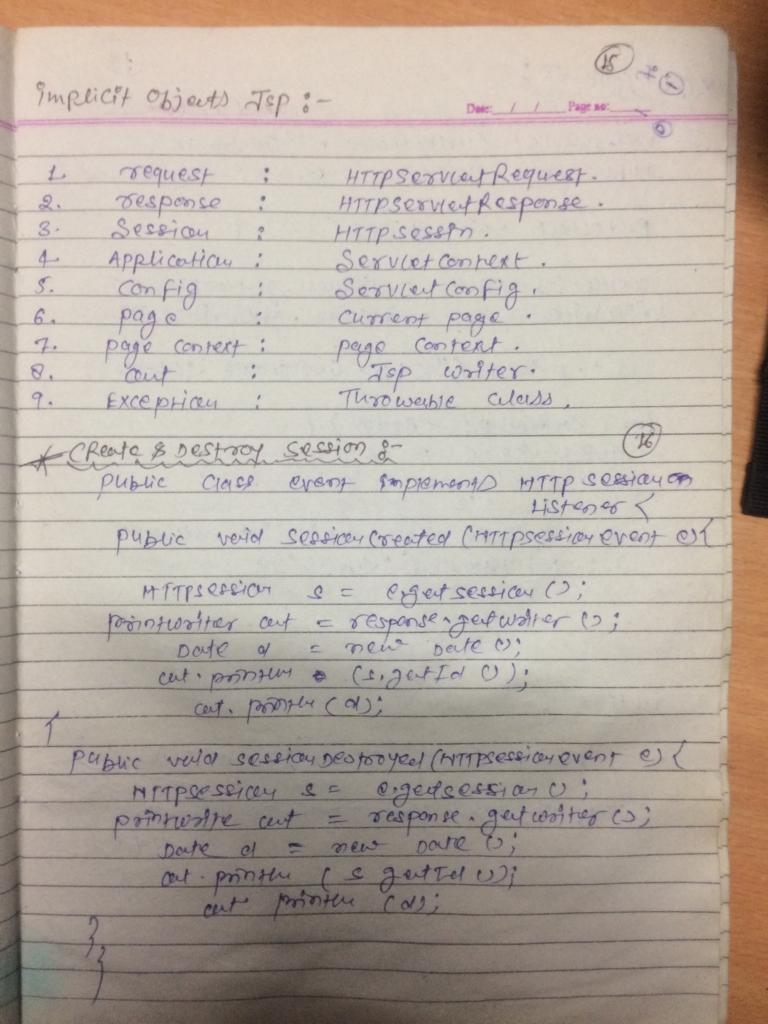 15
Implicit Objects Jsp :-
Date: / / Page no:
1. request : HTTPServletRequest.
2. response : HTTPServletResponse.
3. Session : HTTPSessin.
4. Application : ServletContext.
5. Config : ServletConfig.
6. page : Current page.
7. page context : page Context.
8. out : Jsp writer.
9. Exception : Throwable class.
16
* Create & Destroy Session :-
public class event implements HTTPSession
Listener {
public void sessionCreated (HTTPsessionevent e) {
HTTPsession s = e.getsession ();
printwriter out = response.getwriter ();
Date d = new Date ();
out.println (s.getId ());
out.println (d);
}
public void sessionDestroyed (HTTPsessionevent e) {
HTTPsession s = e.getsession ();
printwrite out = response.getwriter ();
Date d = new Date ();
out.println (s getId ());
out println (d);
}
}